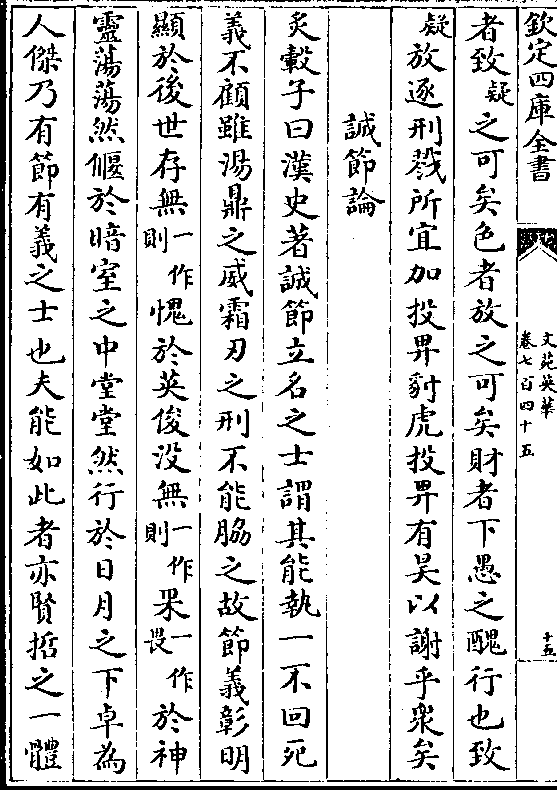 欽定四庫全書
文苑英華
卷七百四十五
十五
者致疑之可矣色者放之可矣財者下愚之醜行也致
疑放逐刑戮所宜加投畀豺虎投畀有昊以謝乎衆矣
誠節論
炙轂子曰漢史著誠節立名之士謂其能執一不回死
義不顧雖湯鼎之威霜刃之刑不能脇之故節義彰明
顯於後世存無一作則愧於英俊没無一作則累一作畏於神
靈蕩蕩然偃於暗室之中堂堂然行於日月之下卓為
人傑乃有節有義之士也夫能如此者亦賢哲之一體